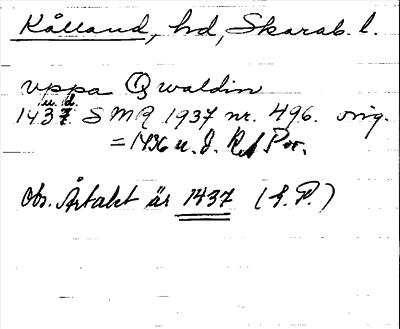 Kålland, hd, Skarab. l.
uppa Qwaldin
u. d.
1437 SMR 1937 nr. 496. orig.
= 1436 u. d. RA Por.
Obs. Årtalet är 1437 (G. P.)